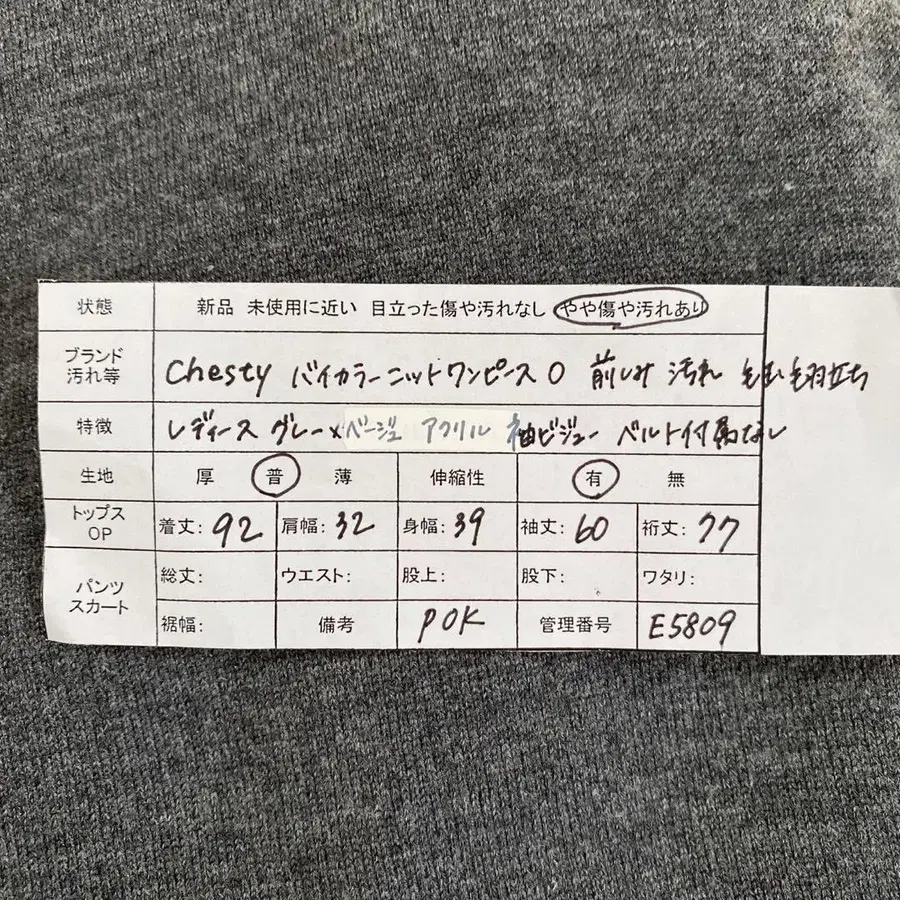 状態 新品 未使用に近い 目立った傷や汚れなし やや傷や汚れあり
ブランド 汚れ等 Chesty バイカラーニットワンピース 0 前しみ 汚れ 毛玉 毛羽立ち
特徴 レディース グレー×ベージュ アクリル 袖ビジュー ベルト付属なし
生地 厚 普 薄 伸縮性 有 無
トップス OP 着丈: 92 肩幅: 32 身幅: 39 袖丈: 60 裄丈: 77
パンツ スカート 総丈: ウエスト: 股上: 股下: ワタリ:
裾幅: 備考 POK 管理番号 E5809